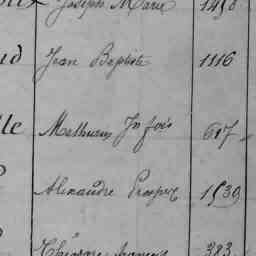 Joseph Marie 1458
ud Jean Baptiste 1116
lle Mathurin 617
Alexandre Prosper 1539
383